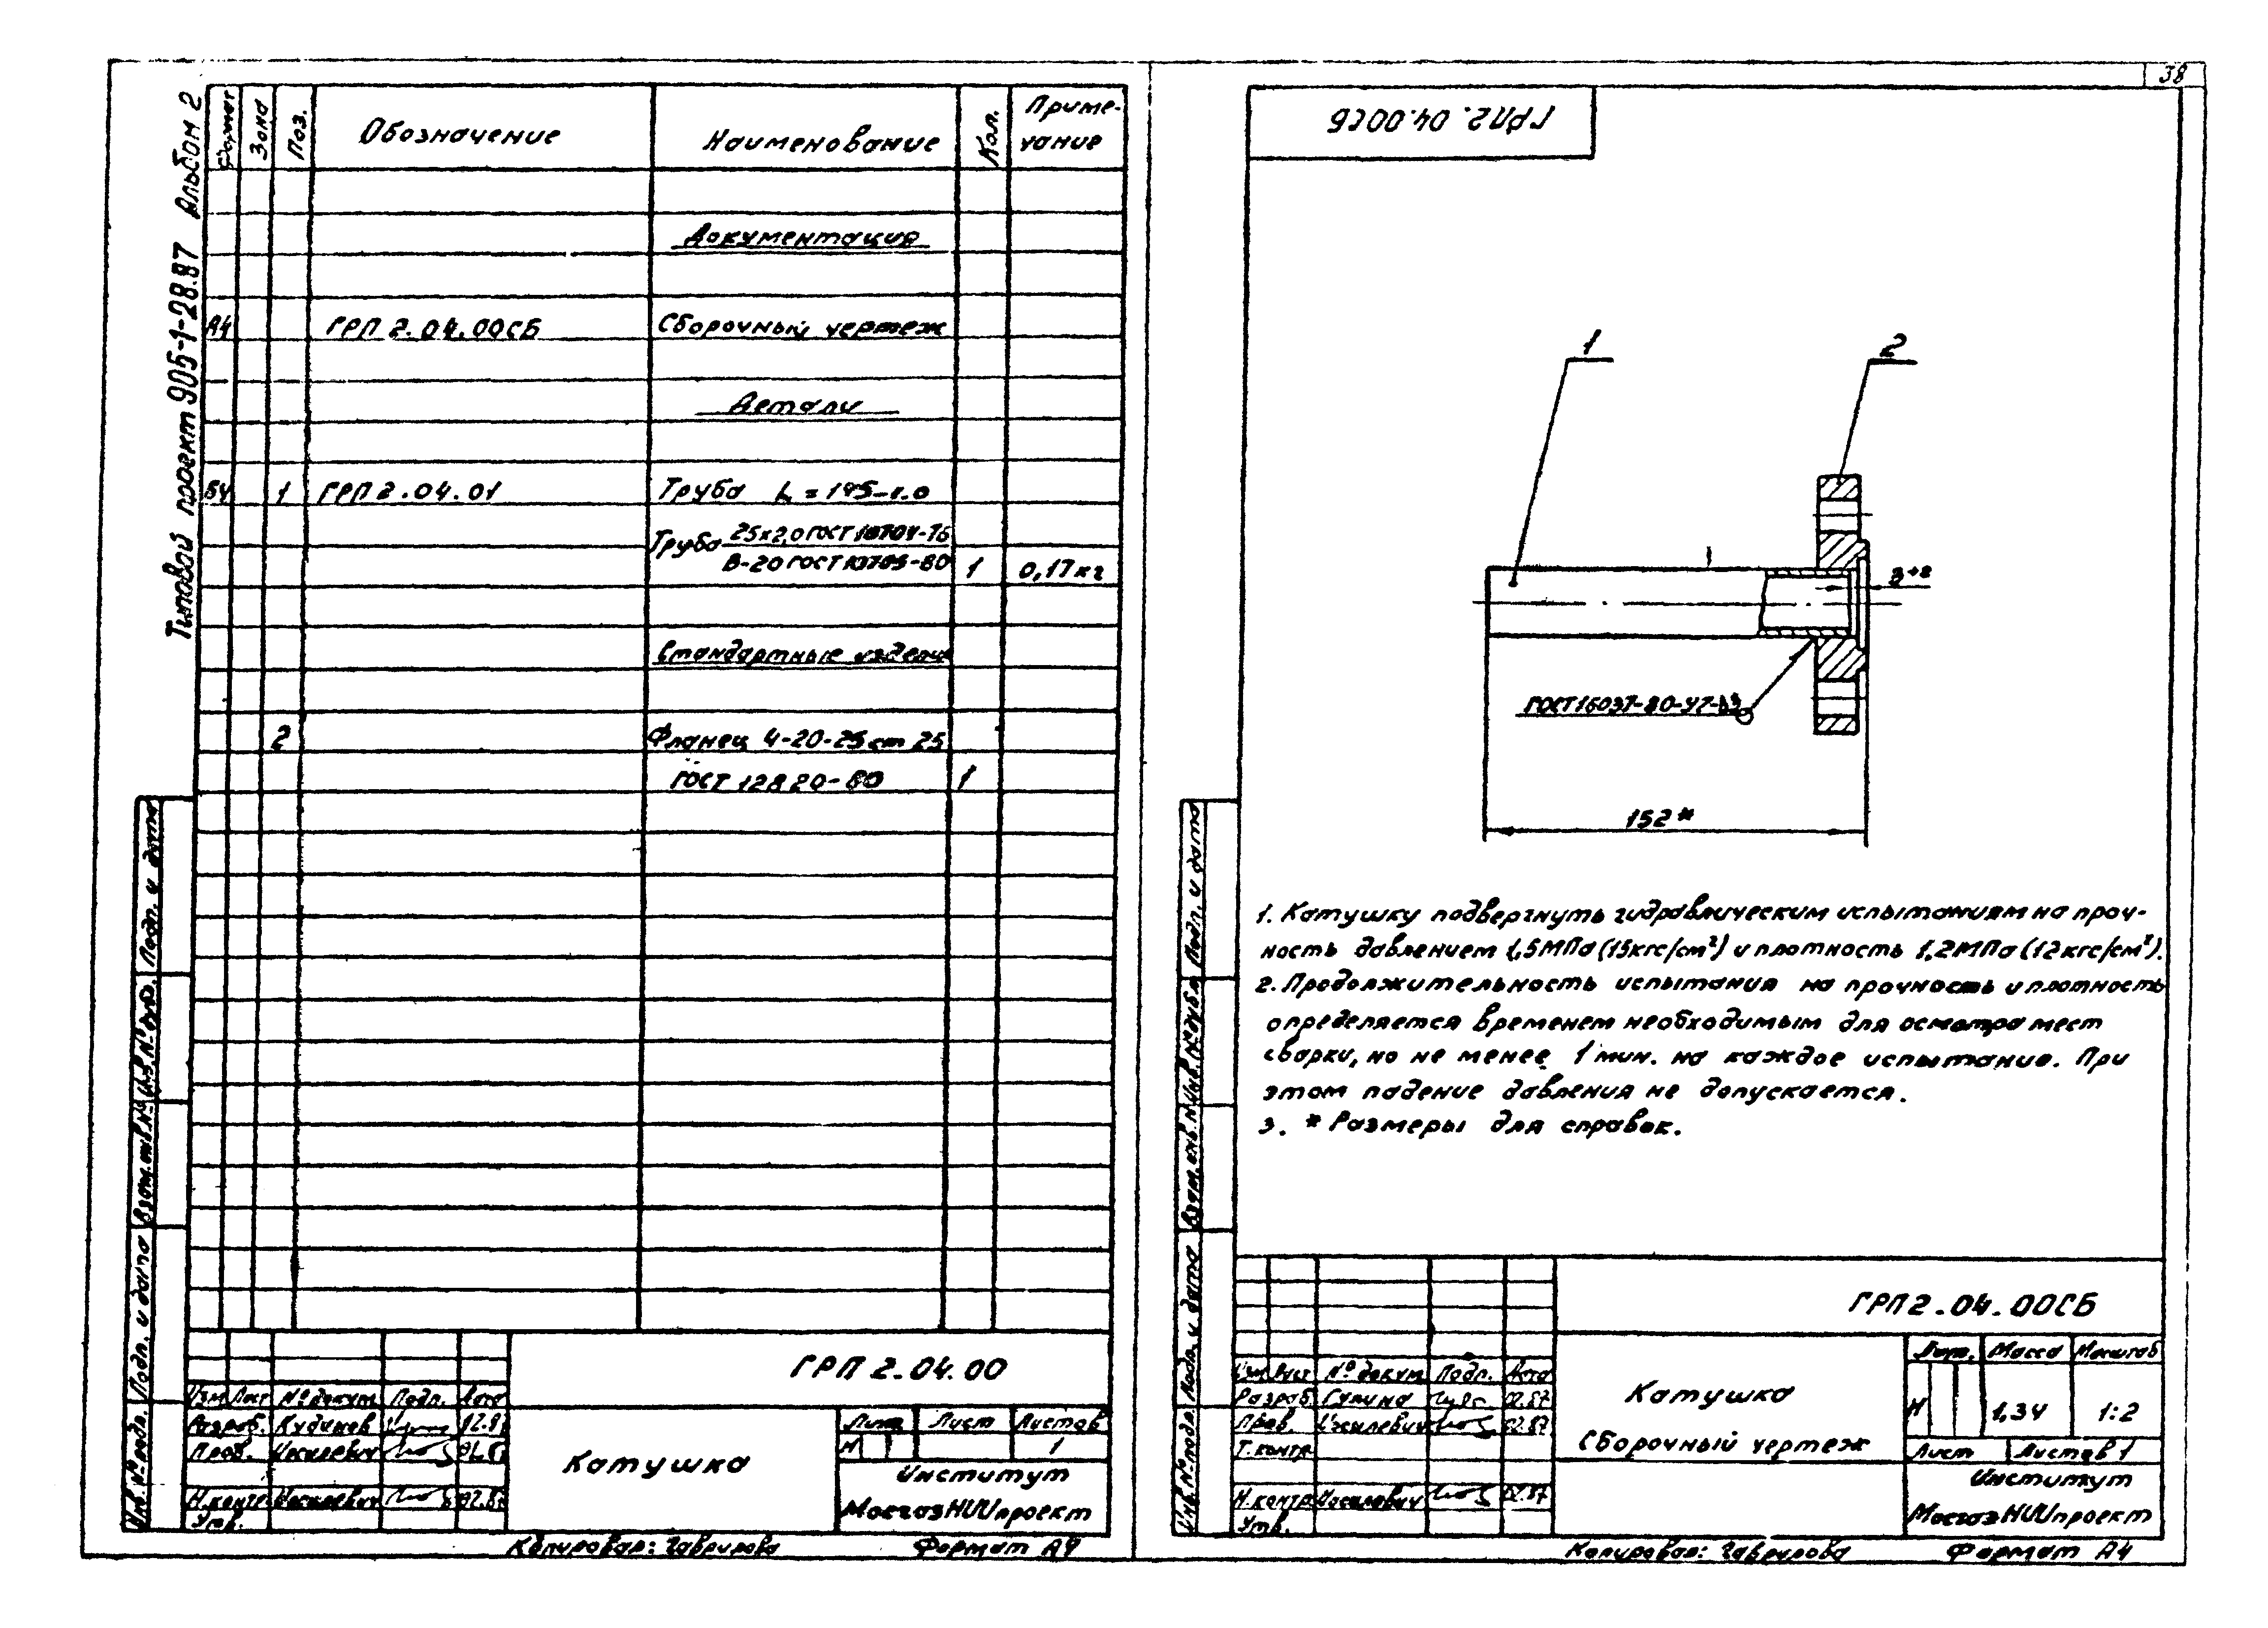 38
Типовой проект 905-1-28.87 Альбом 2
Формат Зона Поз. Обозначение Наименование Кол. Приме-
чание
Документация
А4 ГРП 2.04.00СБ Сборочный чертеж
Детали
БЧ 1 ГРП 2.04.01
Труба
Труба 25х2,0 ГОСТ 10704-76
В-20 ГОСТ 10705-80 1 0,17кг
Стандартные изделия
2 Фланец 4-20-25 ст 25
ГОСТ 12820-80 1
Подп. и дата
Инв.№ дубл.
Взам.инв.№
Подп. и дата
Инв.№ подл.
ГРП 2.04.00
Изм Лист № докум Подп. Дата
Разраб.
Пров.
Н.контр
Утв.
Катушка
Лит Лист Листов
И 1
Институт
МосгазНИИпроект
Копировал: Гаврирова Формат А4
ГРП2.04.00СБ
1
2
3⁺²
152*
1. Катушку подвергнуть гидравлическим испытаниям на проч-
ность давлением 1,5МПа (15кгс/см²) и плотность 1,2МПа (12кгс/см²).
2. Продолжительность испытания на прочность и плотность
определяется временем необходимым для осмотра мест
сварки, но не менее 1 мин. на каждое испытание. При
этом падение давления не допускается.
3. * Размеры для справок.
Подп. и дата
Инв.№ дубл.
Взам.инв.№
Подп. и дата
Инв.№ подл.
ГРП2.04.00СБ
Изм Лист № докум Подп. Дата
Разраб
Пров.
Т.контр
Н.контр
Утв.
Катушка
Сборочный чертеж
Лит. Масса Масштаб
И 1,34 1:2
Лист Листов 1
Институт
МосгазНИИпроект
Копировал: Гаврирова Формат А4